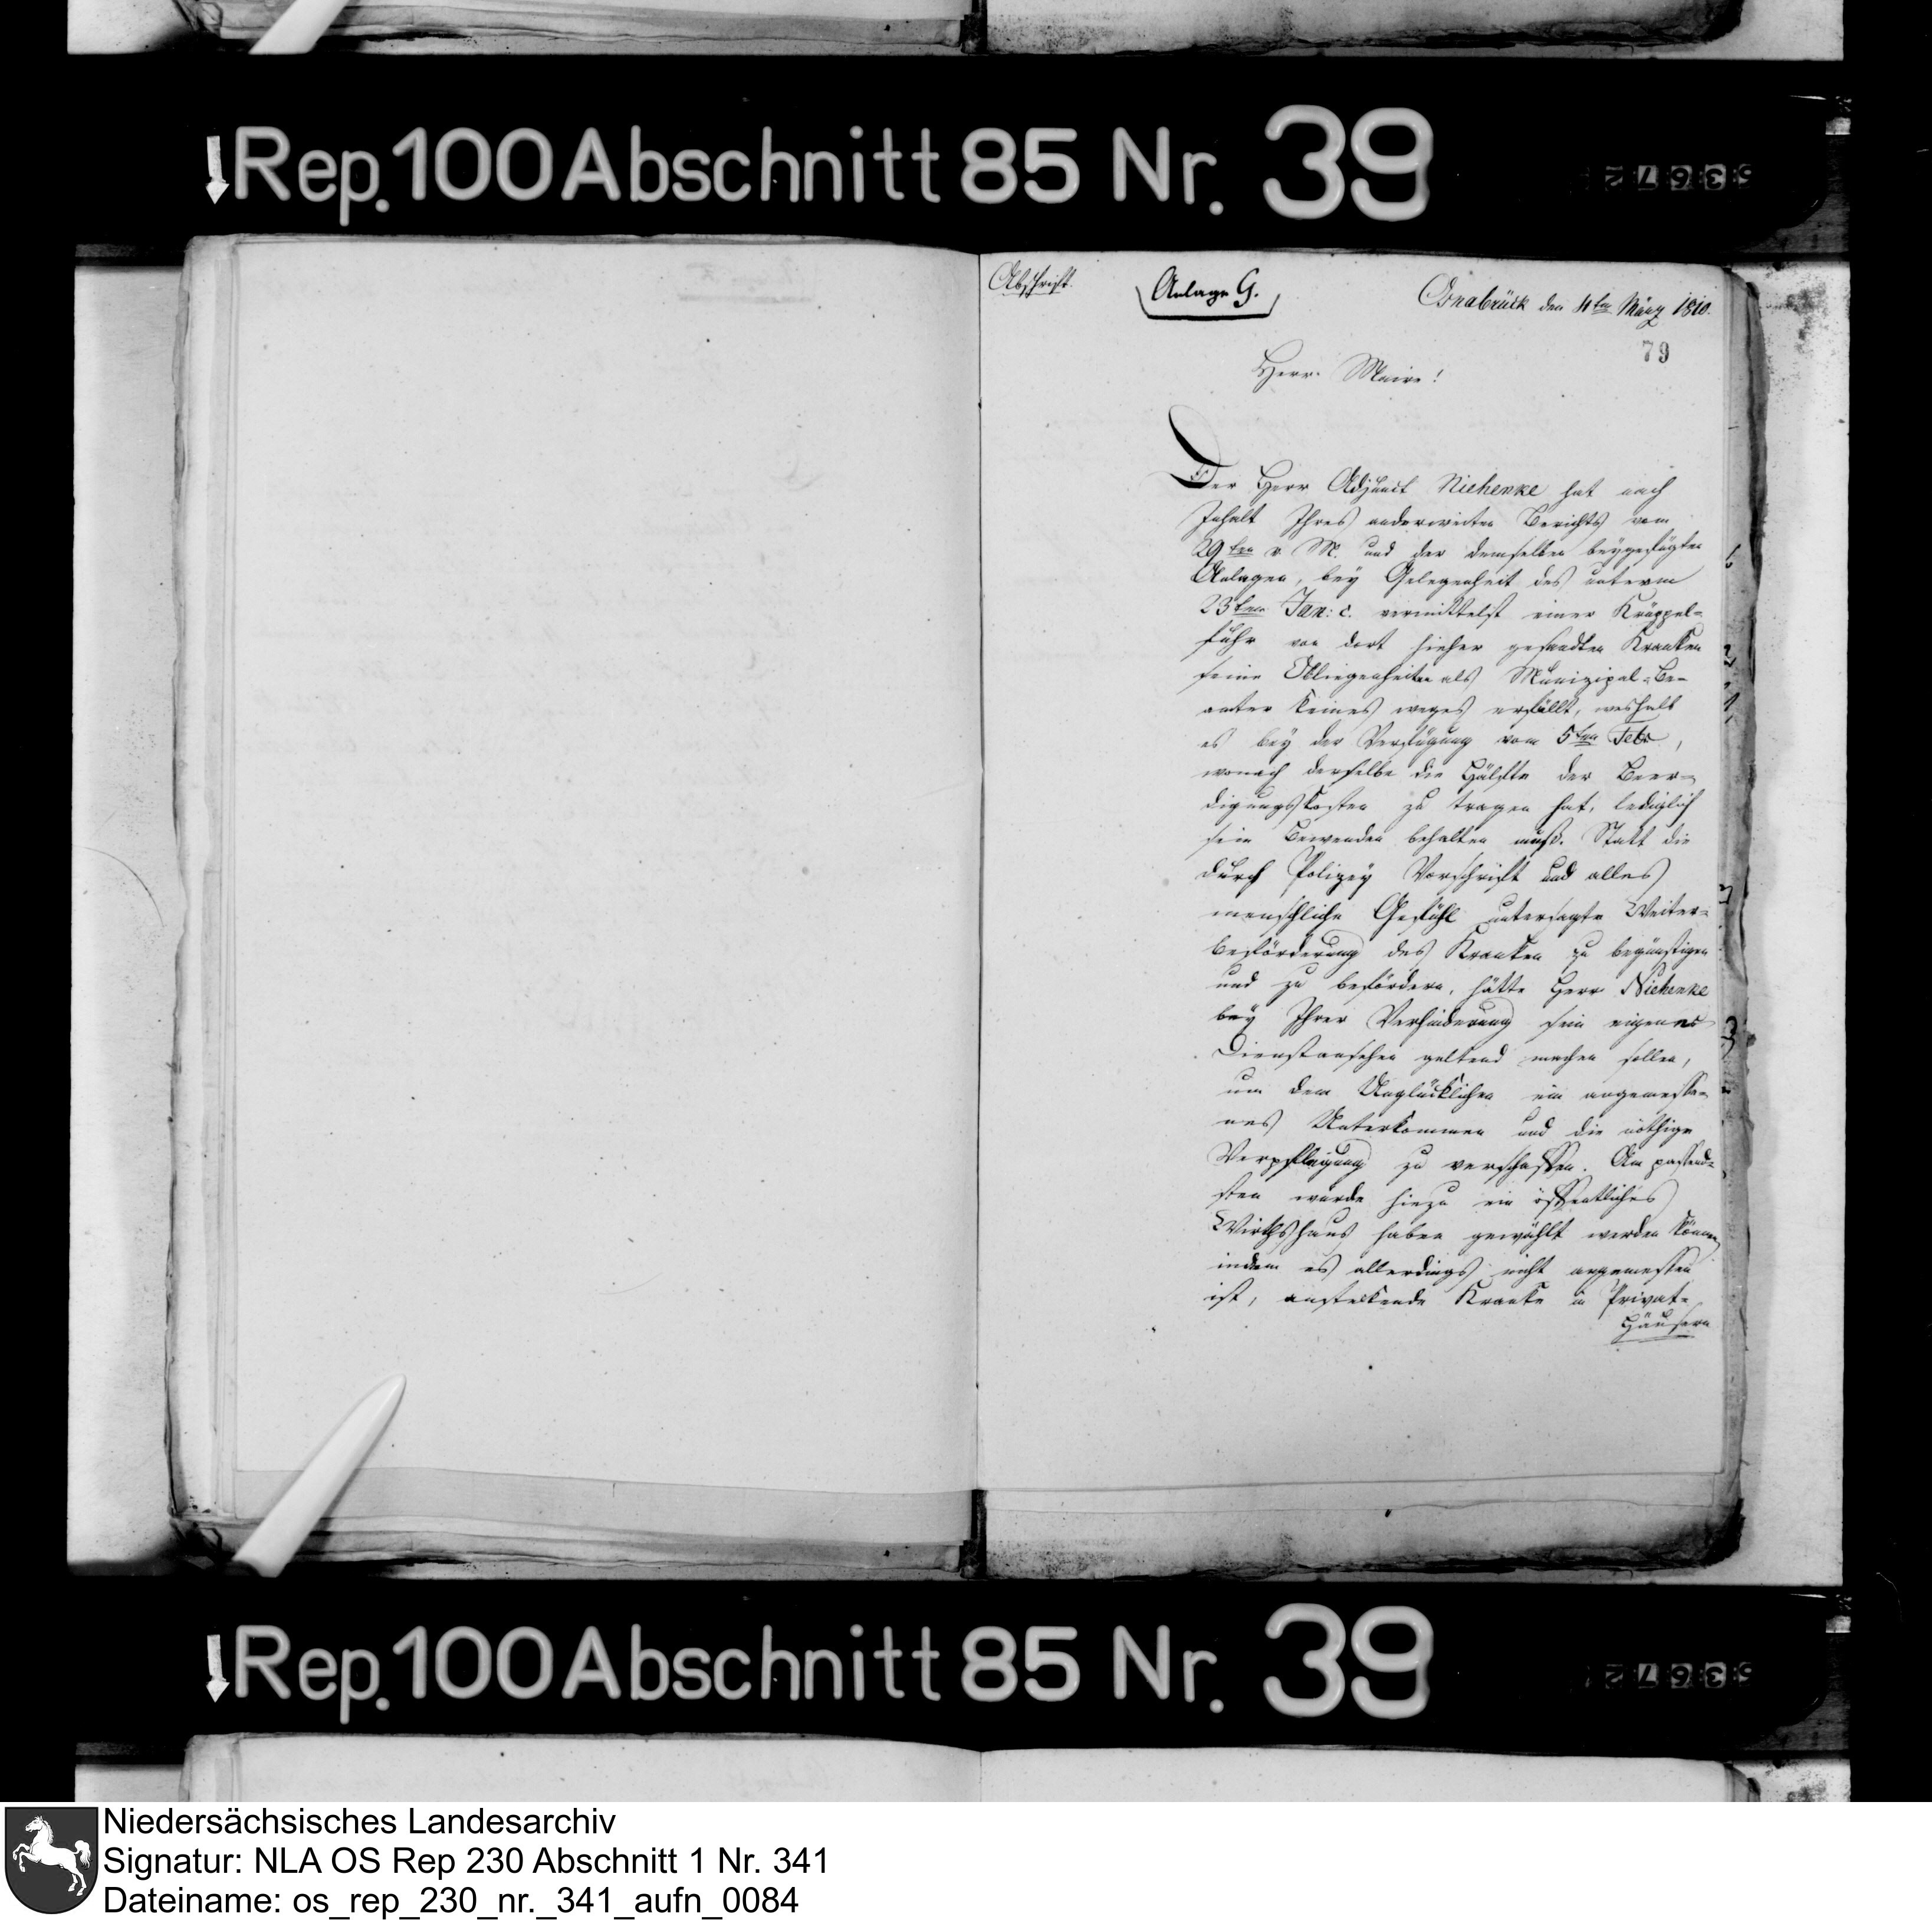 Rep. 100 Abschnitt 85 Nr. 39
Abschrift.
Anlage G.
Osnabrück den 4ten März 1810.
79
Herr Maire!
Der Herr Adjunct Niehenke hat nach
Inhalt Ihres anderweiten Berichts vom
29ten v. M. und der demselben beygefügten
Anlagen, bey Gelegenheit des unterm
23ten Jan: c. vermittelst einer Krüppel-
fuhr von dort hieher gesandten Kranken
seine Obliegenheiten als Munizipal-Be-
amter keines weges erfüllt, weshalb
es bey der Verfügung vom 5ten Febr,
wonach derselbe die Hälfte der Beer-
digungskosten zu tragen hat, lediglich
sein Bewenden behalten muß. Statt die
durch Polizey Vorschrift und alles
menschliche Gefühl untersagte Weiter-
beförderung des Kranken zu begünstigen
und zu befördern, hätte Herr Niehenke
bey Ihrer Verhinderung sein eigenes
Dienstansehen geltend machen sollen,
um dem Unglücklichen ein angemesse-
nes Unterkommen und die nöthige
Verpflegung zu verschaffen. Am passend-
sten würde hiezu ein öffentliches
Wirthshaus haben gewählt werden können
indem es allerdings nicht angemessen
ist, ansteckende Kranke in Privat-
Häusern
Rep. 100 Abschnitt 85 Nr. 39
Niedersächsisches Landesarchiv
Signatur: NLA OS Rep 230 Abschnitt 1 Nr. 341
Dateiname: os_rep_230_nr._341_aufn_0084